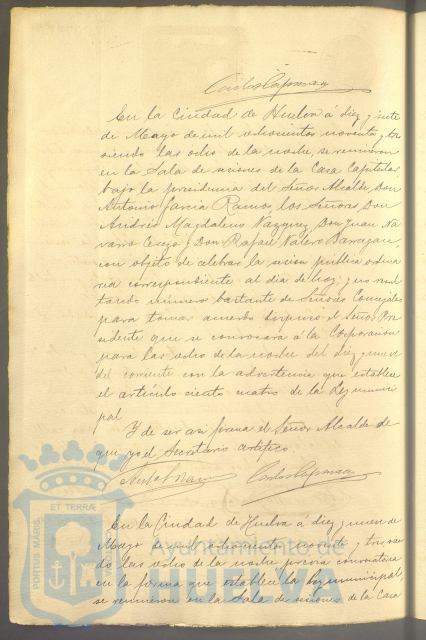 En la Ciudad de Huelva á diez y siete
de Mayo de mil ochocientos noventa y tres
siendo las ocho de la noche, se reunieron
en la Sala de sesiones de la Casa Capitular
bajo la presidencia del Señor Alcalde Don
Antonio García Ramos los Señores Don
Andrés Magdaleno Vazquez Don Juan Na
varro Cerejo y Don Rafael Valero Barragan,
con objeto de celebrar la sesion publica ordina
ria correspondiente al dia de hoy; y no resul
tando número bastante de Señores Concejales
para tomar acuerdo dispuso el Señor Pre
sidente que se convocara á la Corporacion
para las ocho de la noche del diez y nueve
del corriente con la advertencia que establece
el artículo ciento cuatro de la Ley munici
pal
Y de ser asi firma el Señor Alcalde de
que yo el Secretario certifico
En la Ciudad de Huelva á diez y nueve de
Mayo de mil ochocientos noventa y tres sien
do las ocho de la noche previa convocatoria
en la forma que establece la ley municipal,
se reunieron en la Sala de sesiones de la Casa
PORTUS MARIS ET TERRÆ
Ayuntamiento de
HUELVA